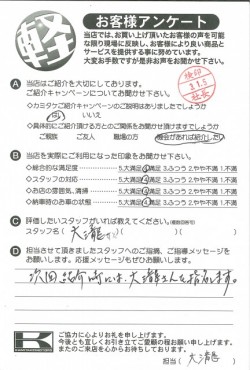 軽
お客様アンケート
当店では、お買い上げ頂いたお客様の声を可能な
限り現場に反映し、お客様により良い商品と
サービスを提供する事に努めています。
大変お手数ですが是非お声をお聞かせ下さい。
A 当店はご紹介を大切にしております。
ご紹介キャンペーンについてお聞かせ下さい。
検印
店長
・カミタケご紹介キャンペーンのご説明はありましたでしょうか
はい いいえ
・具体的にご紹介頂ける方とのご関係をお聞かせ頂けますでしょうか
ご親族 ご友人 職場の方 機会があれば紹介したい
B 当店を実際にご利用になった印象をお聞かせ下さい。
・総合的な満足度 5.大満足 4.満足 3.ふつう 2.やや不満 1.不満
・スタッフの対応 5.大満足 4.満足 3.ふつう 2.やや不満 1.不満
・お店の雰囲気、清掃 5.大満足 4.満足 3.ふつう 2.やや不満 1.不満
・納車時のお車の状態 5.大満足 4.満足 3.ふつう 2.やや不満 1.不満
C 評価したいスタッフがいれば教えてください。(複数回答可)
スタッフ名( 大瀧さん )
D 担当させて頂きましたスタッフへのご指摘、ご指導メッセージを
お願いします。応援メッセージもぜひお願いします。
次回紹介時には、大瀧さんを指名します。
K
ご協力に心よりお礼を申し上げます。
今後とも宜しくお引き立てご愛顧の程お願い申し上げます。
またのご来店を心からお待ちしております。
担当( 大瀧 )